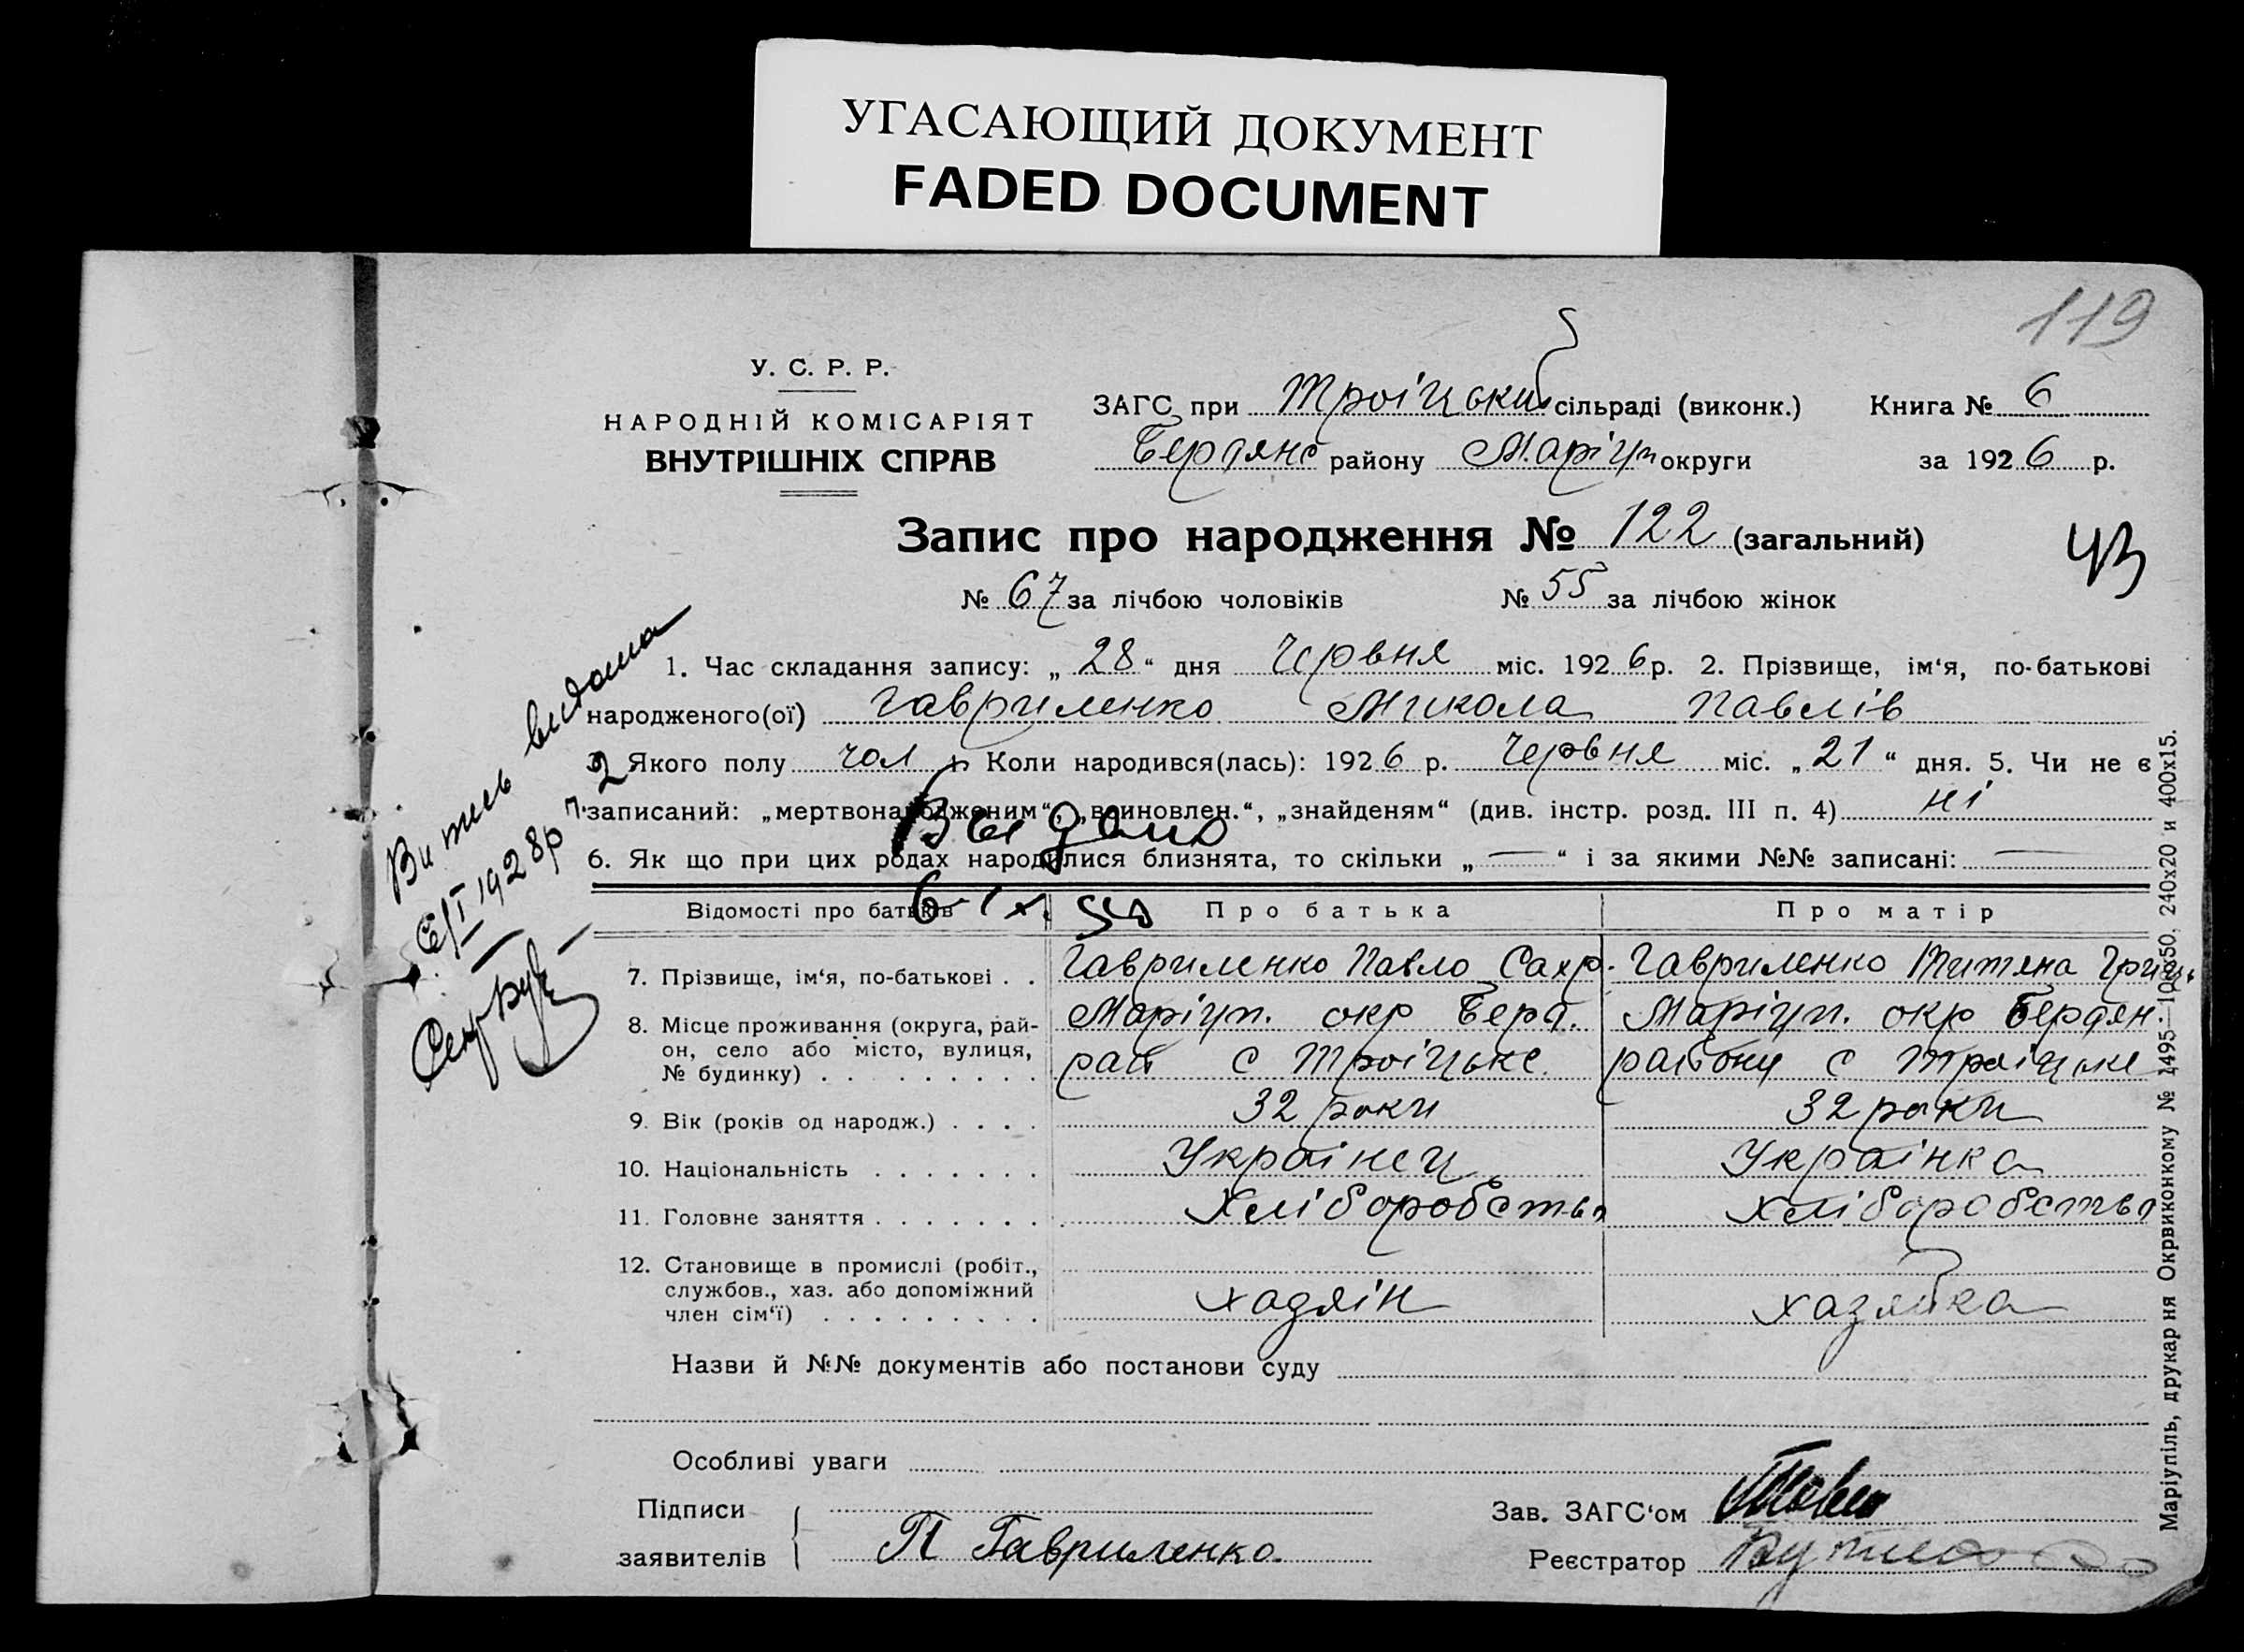 УГАСАЮЩИЙ ДОКУМЕНТ
FADED DOCUMENT
119
У. С. Р. Р.
НАРОДНІЙ КОМІСАРІЯТ
ВНУТРІШНІХ СПРАВ
ЗАГС при Троіцький сільраді (виконк.) Книга № 6
Бердянс району Маріуп округи за 1926 р.
Запис про народження № 122 (загальний)
43
№ 67 за лічбою чоловіків № 55 за лічбою жінок
1. Час складання запису: „28“ дня Червня міс. 1926 р. 2. Прізвище, ім‘я, по-батькові
народженого(ої) Гавриленко Микола Павлів
Якого полу чол Коли народився(лась): 1926 р. Червня міс. „21“ дня. 5. Чи не є
записаний: „мертвонародженим“, „всиновлен.“, „знайденям“ (див. інстр. розд. III п. 4) ні
Выдано
6. Як що при цих родах народилися близнята, то скільки „—“ і за якими №№ записані: —
Витись видана
1928р
Відомості про батьків Про батька Про матір
7. Прізвище, ім‘я, по-батькові . . Гавриленко Павло Сахр. Гавриленко Титяна Григ
8. Місце проживання (округа, рай- Маріуп. окр Берд. Маріуп. окр Бердян.
он, село або місто, вулиця, рай с Троіцьке району с Троіцьке
№ будинку) . . . . . . . . .
9. Вік (років од народж.) . . . . 32 роки 32 роки
10. Національність . . . . . . . Украінец Украінка
11. Головне заняття . . . . . . . Хліборобство хліборобство
12. Становище в промислі (робіт.,
службов., хаз. або допоміжний хазяін хазяйка
член сім‘ї) . . . . . . . . .
Назви й №№ документів або постанови суду
Особливі уваги
Підписи
заявителів П Гавриленко.
Зав. ЗАГС‘ом
Реєстратор
Маріупіль, друкарня Окрвиконкому № 1495—10x50. 240x20 и 400x15.